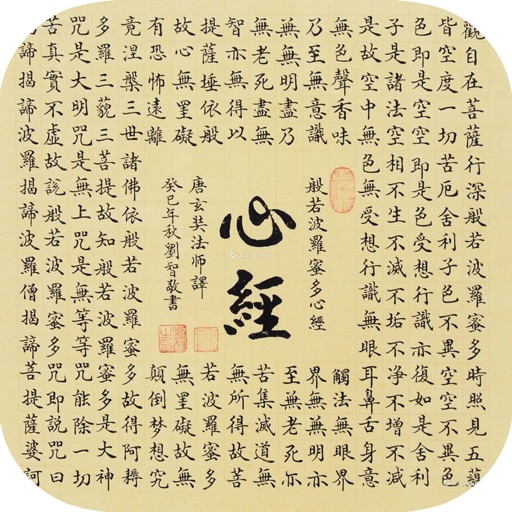 觀自在菩薩行深般若波羅蜜多時照見五蘊
皆空度一切苦厄舍利子色不異空空不異色
色即是空空即是色受想行識亦復如是舍利
子是諸法空相不生不滅不垢不净不增不減
是故空中無色無受想行識無眼耳鼻舌身意
無色聲香味
觸法無眼界
乃至無意識
界無無明亦
無無明盡乃
至無老死亦
無老死盡無
苦集滅道無
智亦無得以
無所得故菩
提薩埵依般
若波羅蜜多
故心無罣礙
無罣礙故無
有恐怖遠離
顛倒梦想究
竟涅槃三世諸佛依般若波羅蜜多故得阿耨
多羅三藐三菩提故知般若波羅蜜多是大神
咒是大明咒是無上咒是無等等咒能除一切
苦真實不虛故說般若波羅蜜多咒即說咒曰
諦揭諦波羅揭諦波羅僧揭諦菩提薩婆訶
般若波羅蜜多心經
心經
唐玄奘法师譯
癸巳年秋劉智敬書